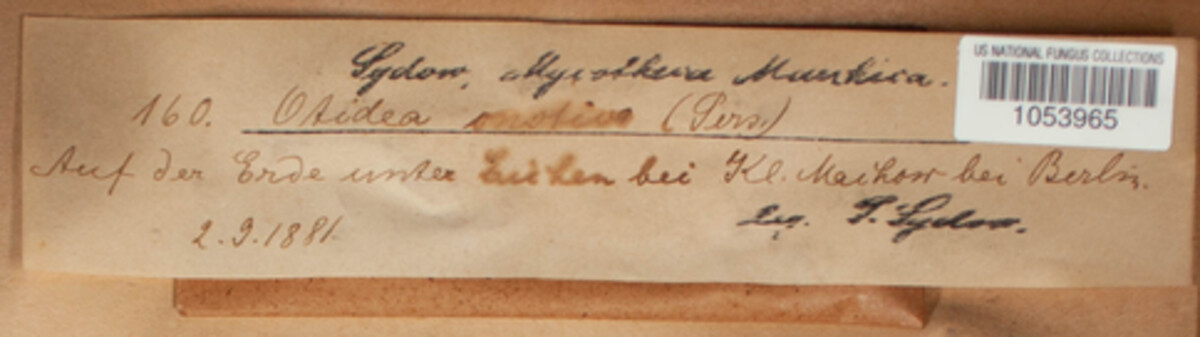 Sydow, Mycotheca Marchica.
US NATIONAL FUNGUS COLLECTIONS
1053965
160. Otidea (Pers.)
Auf der Erde unter Eichen bei Kl. Machow bei Berlin.
2.9.1881 leg. P. Sydow.